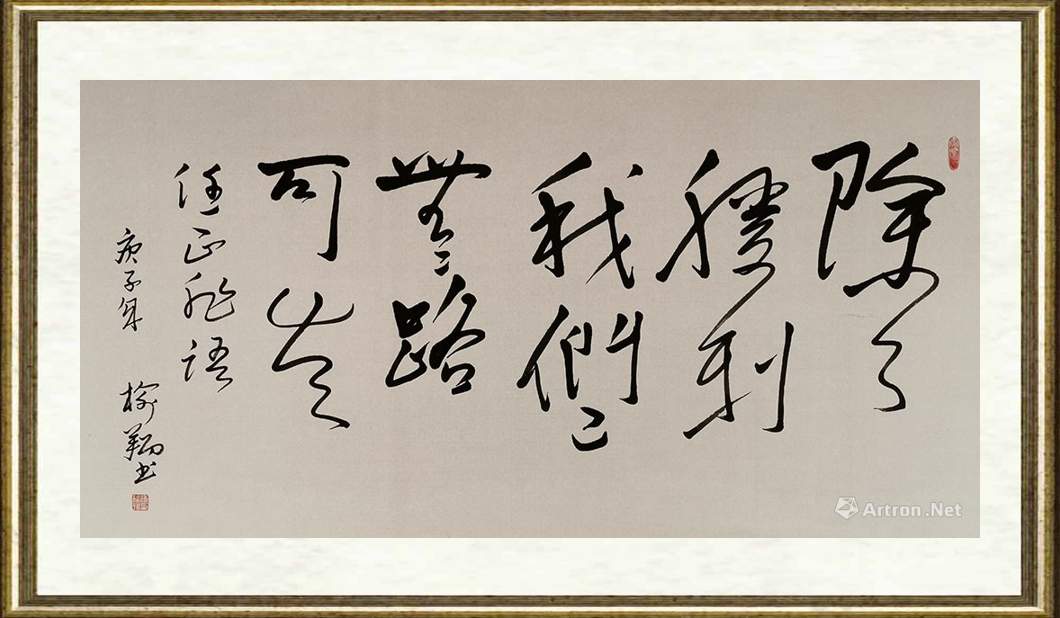 除了
勝利
我們已
無路
可走
任正非語
庚子年 榆翔书
Artron.Net